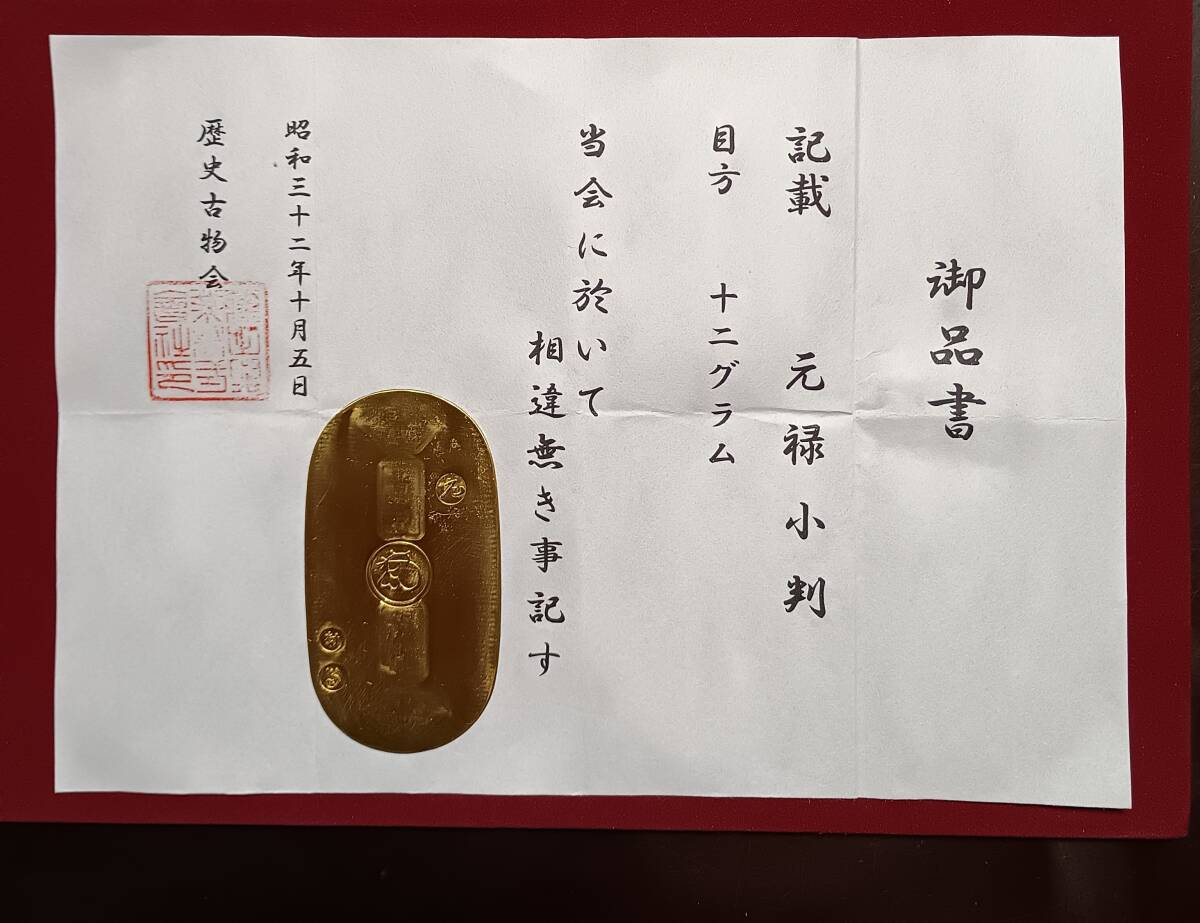 御品書
記載 元禄小判
目方 十二グラム
当会に於いて
相違無き事記す
昭和三十二年十月五日
歴史古物会